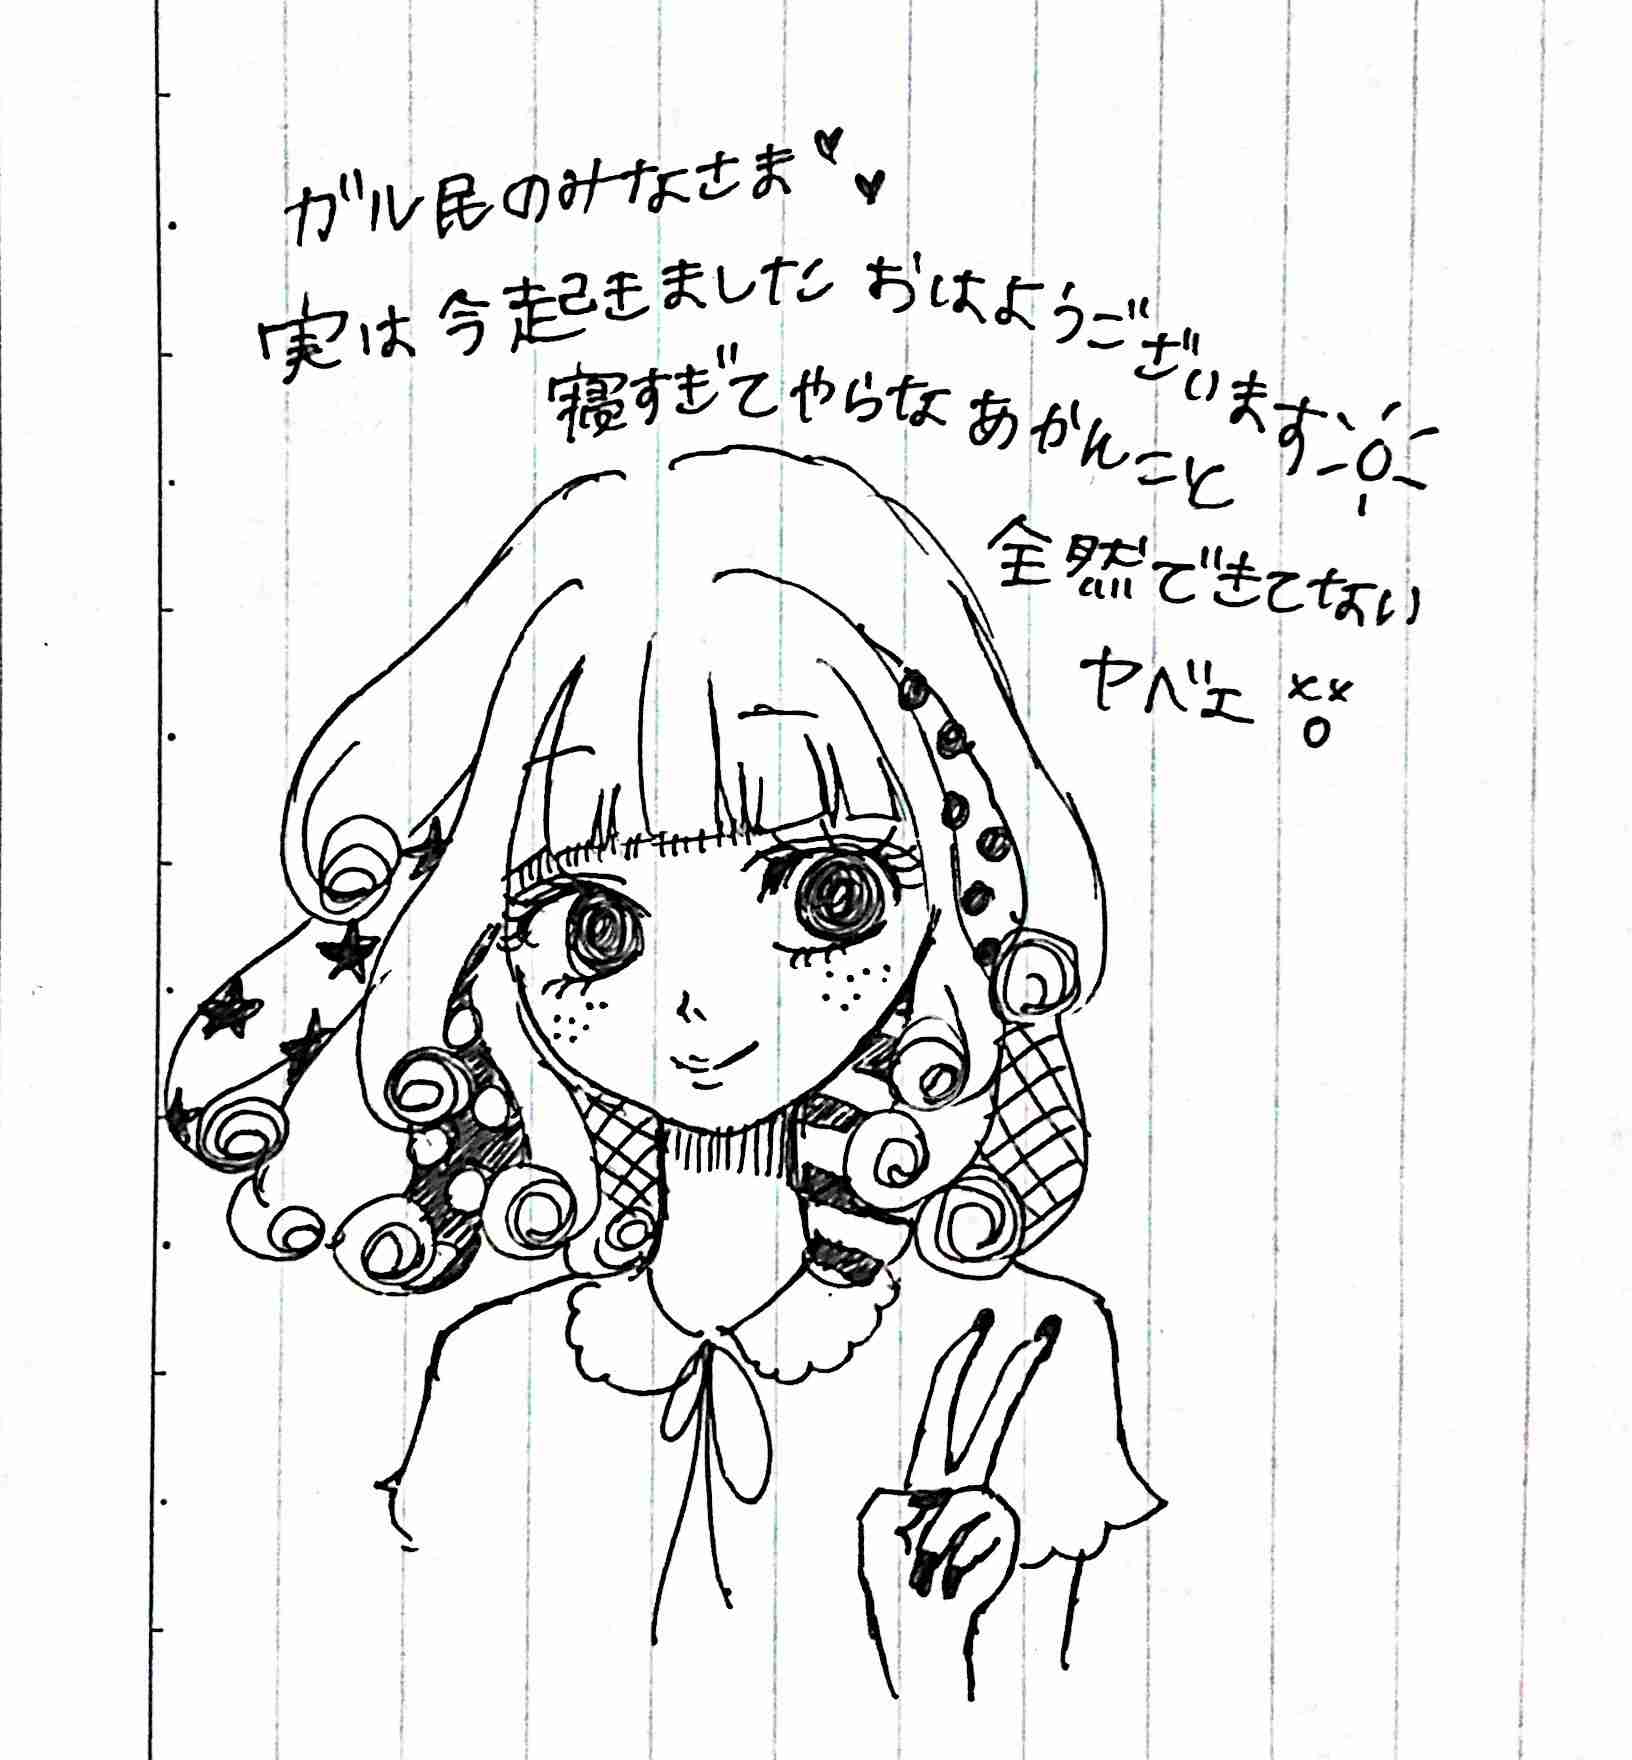 ガル民のみなさま♥♥
実は今起きました おはようございます
寝すぎてやらなあかんこと
全然できてない
ヤベェ